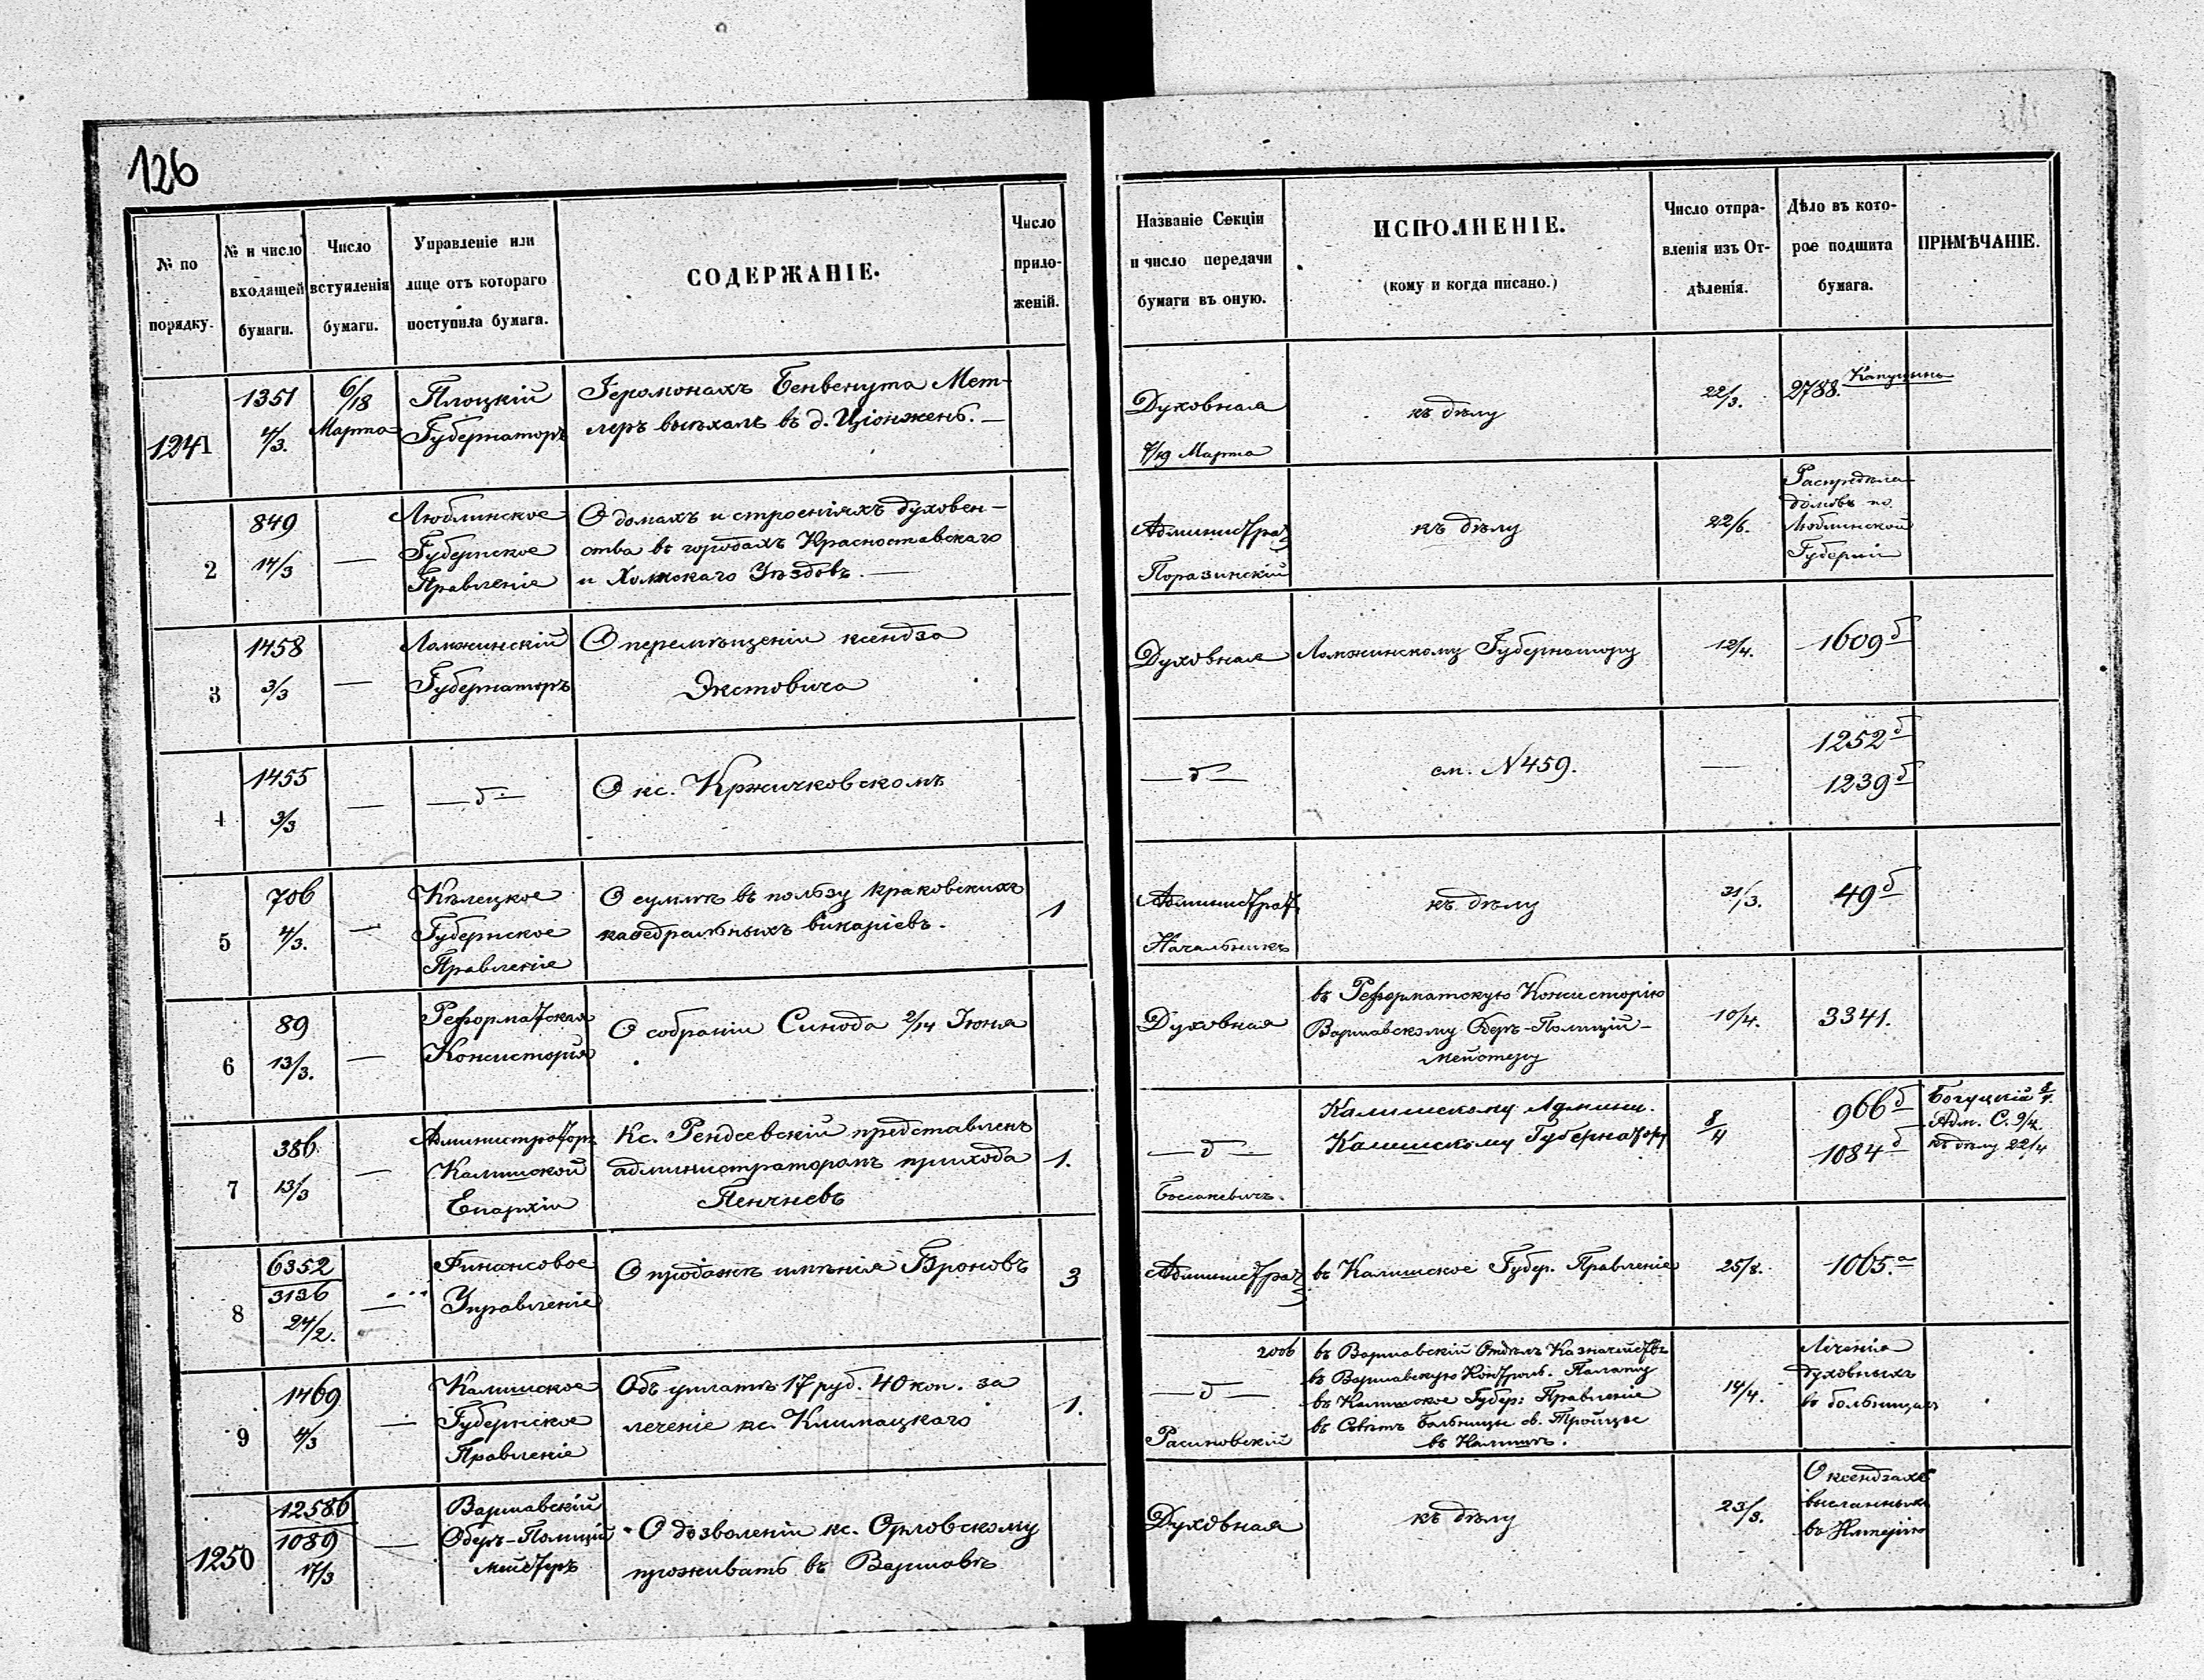 126
№ по порядку.
№ и число входящей бумаги.
Число вступленія бумаги.
Управленіе или лице отъ котораго поступила бумага.
СОДЕРЖАНІЕ.
Число приложеній.
Названіе Секціи и число передачи бумаги въ оную.
ИСПОЛНЕНІЕ.
(кому и когда писано.)
Число отпра-
вленія изъ От-
дѣленія.
Дѣло въ кото-
рое подшита
бумага.
ПРИМѢЧАНІЕ.
1241
1351
4/3.
6/18
Марта
Плоцкій
Губернаторъ
Іеромонахъ Бенвенута Мет-
леръ выѣхалъ въ д. Ціонжень. —
Духовная
7/19 Марта
къ дѣлу
22/3.
2788.
2
849
14/3
—
Люблинское
Губернское
Правленіе
О домахъ и строеніяхъ духовен-
ства въ городахъ Красноставскаго
и Холмскаго Уѣздовъ. —
Администрат
Поразинскій
къ дѣлу
22/6.
домовъ по
Люблинской
Губерніи
3
1458
3/3
—
Ломжинскій
Губернаторъ
О перемѣщеніи ксендза
Экстовича
Духовная
Ломжинскому Губернатору
12/4.
1609 б
4
1455
3/3
—
— д —
О кс. Кржичковскомъ
— д —
см. N 459.
—
1252 б
1239 б
5
706
4/3.
—
Кѣлецкое
Губернское
Правленіе
О суммѣ въ пользу краковскихъ
каѳедральныхъ викаріевъ.
1
Администрат.
Начальникъ
къ дѣлу
31/3.
49 б
6
89
13/3.
—
Реформатская
Консисторія
О собраніи Синода 2/14 Іюня
Духовная
въ Реформатскую Консисторію
Варшавскому Оберъ-Полицій-
мейстеру
10/4.
3341.
7
386
13/3
—
Администраторъ
Калишской
Епархіи
Кс. Рендсевскій представленъ
администраторомъ прихода
Пенчневъ
1.
— д —
Калишскому Админи.
Калишскому Губернатору
8/4
966 б
1084 б
Богуцкій
Адм. С. 9/4
къ дѣлу 22/4
8
6352
3136
24/2.
—
Финансовое
Управленіе
О продажѣ имѣнія Броновъ
3
Администрат
въ Калишское Губер. Правленіе
25/8.
1065. а
9
1469
4/3
—
Калишское
Губернское
Правленіе
Объ уплатѣ 17 руб. 40 коп. за
леченіе кс. Климацкаго
1.
2006
— д —
въ Варшавскій Отдѣлъ Казначействъ
въ Варшавскую Контроль. Палату
въ Калишское Губер: Правленіе
въ Совѣтъ Больницы св. Троицы
въ Калишѣ.
14/4.
Леченіе
духовныхъ
въ больницахъ
1250
12586
1089
17/3
—
Варшавскій
Оберъ-Полицій
мейстеръ
О дозволеніи кс. Орловскому
проживать въ Варшавѣ
Духовная
къ дѣлу
23/3.
О ксендзахъ
высланныхъ
въ Имперію